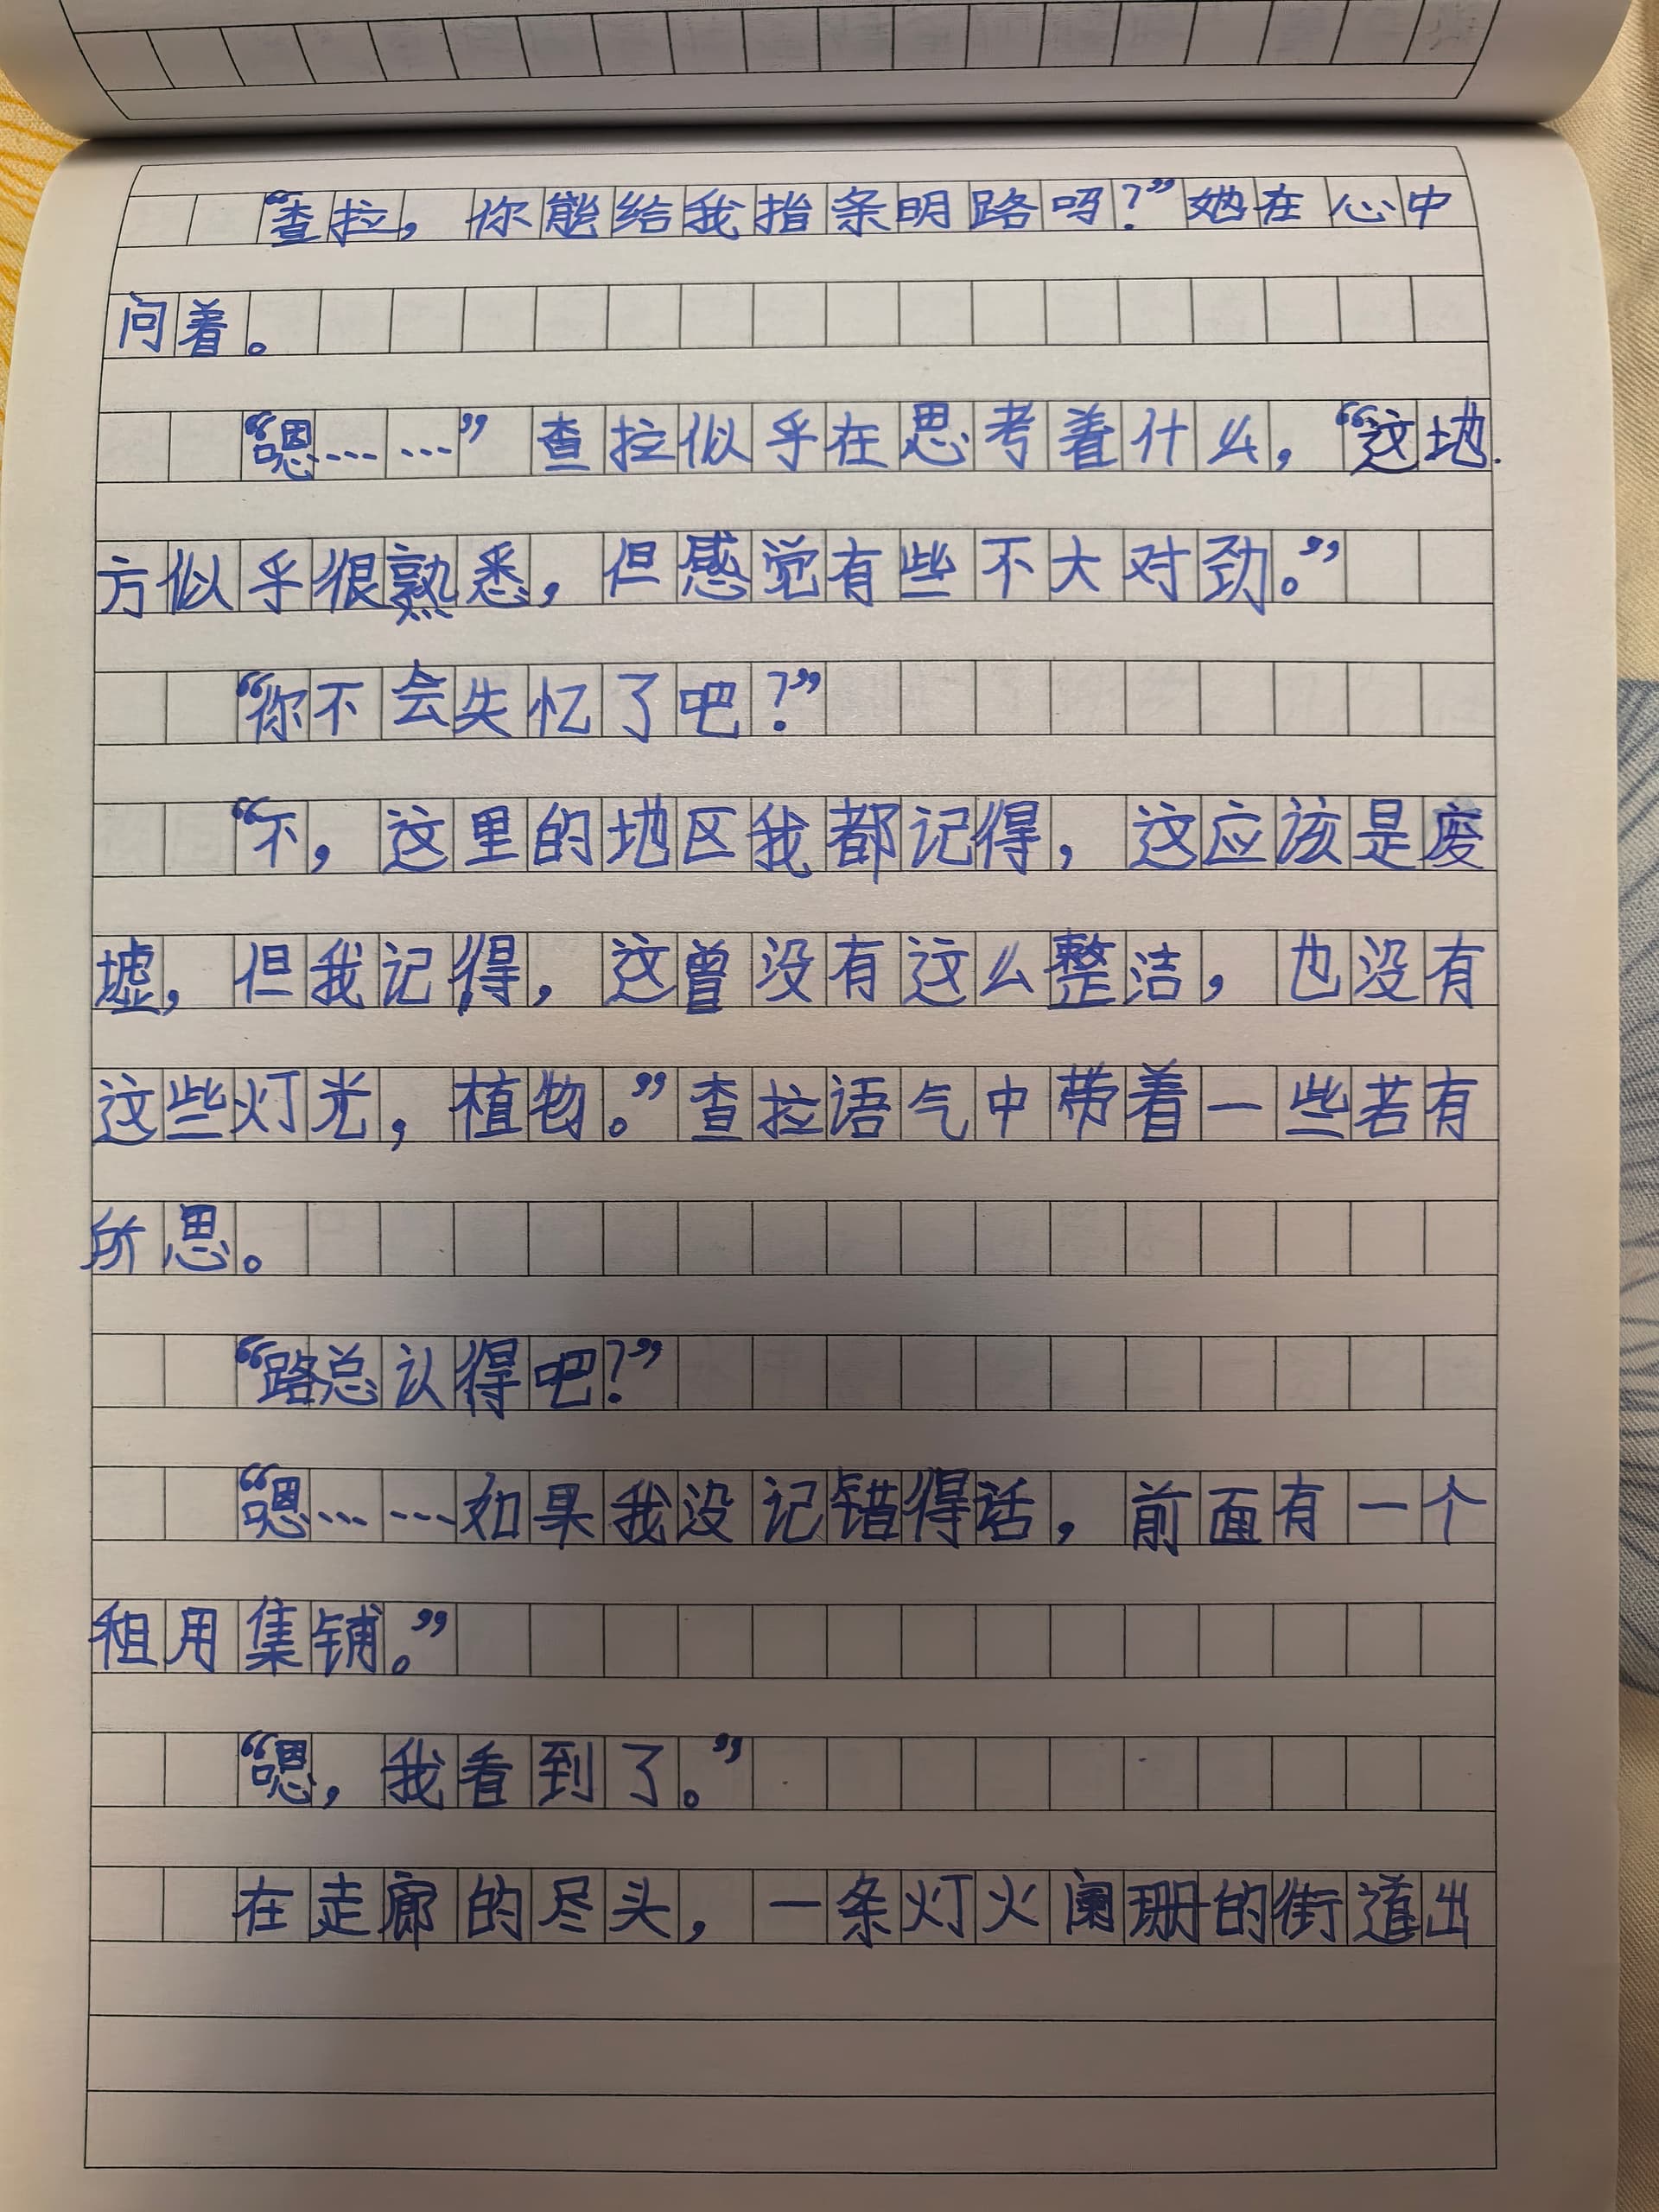 “查拉，你能给我指条明路吗？”她在心中
问着。
“嗯……”查拉似乎在思考着什么，“这地
方似乎很熟悉，但感觉有些不大对劲。”
“你不会失忆了吧？”
“不，这里的地区我都记得，这应该是废
墟，但我记得，这曾没有这么整洁，也没有
这些灯光，植物。”查拉语气中带着一些若有
所思。
“路总认得吧？”
“嗯……如果我没记错得话，前面有一个
租用集铺。”
“嗯，我看到了。”
在走廊的尽头，一条灯火阑珊的街道出